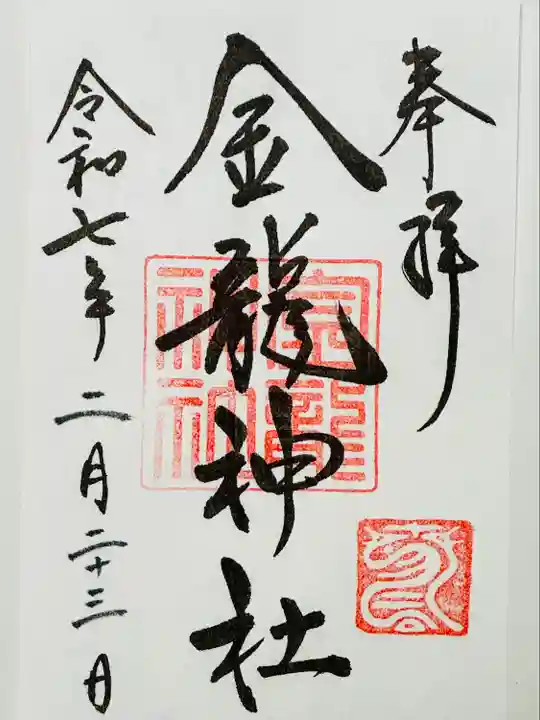 奉拝
金龍神社
令和七年二月二十三日